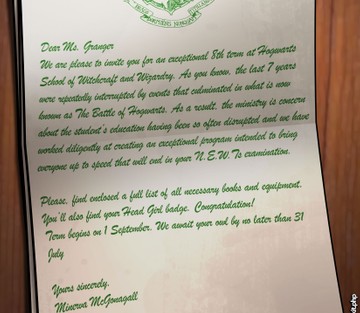 Dear Ms. Granger
We are please to invite you for an exceptional 8th term at Hogwarts
School of Witchcraft and Wizardry. As you know, the last 7 years
were repeatedly interrupted by events that culminated in what is now
known as The Battle of Hogwarts. As a result, the ministry is concern
about the student's education having been so often disrupted and we have
worked diligently at creating an exceptional program intended to bring
everyone up to speed that will end in your N.E.W.Ts examination.
Please, find enclosed a full list of all necessary books and equipment.
You'll also find your Head Girl badge. Congratulation!
Term begins on 1 September. We await your owl by no later than 31
July
Yours sincerely,
Minerva McGonagall